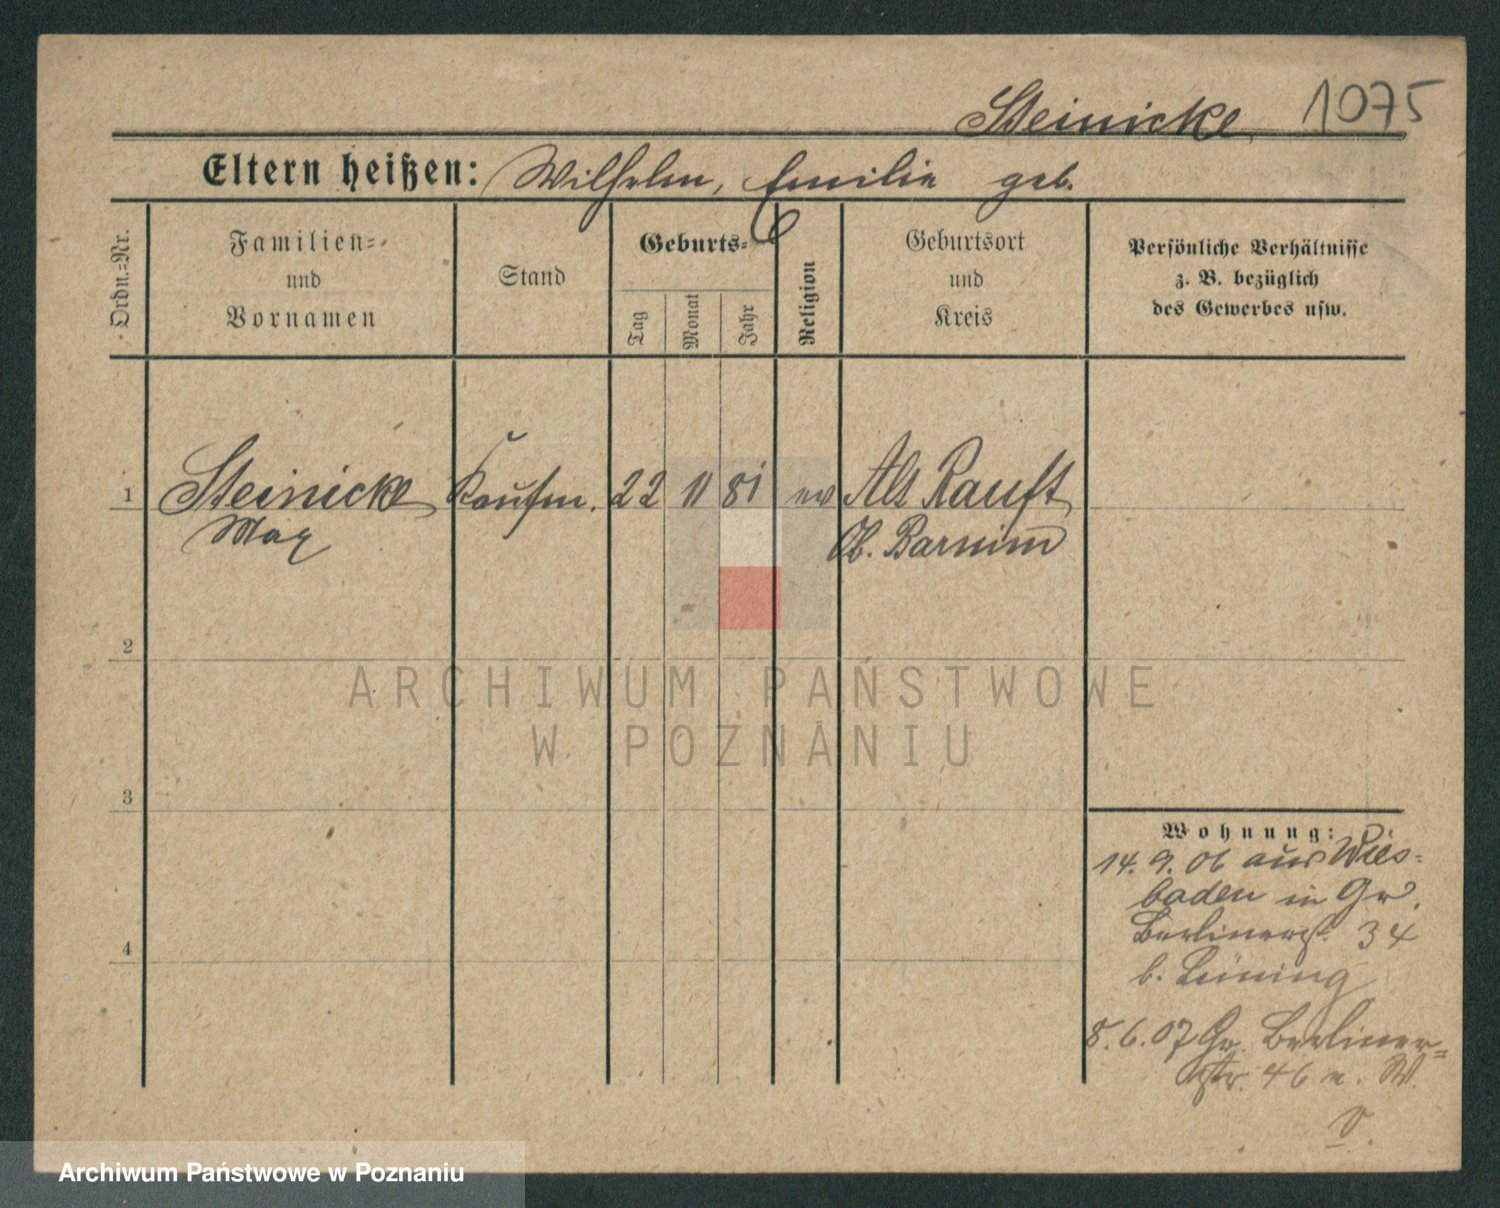 Steinicke 1075
Eltern heißen: Wilhelm, Emilie geb.
Ordn.=Nr.
Familien=
und
Vornamen
Stand
Geburts=
Tag
Monat
Jahr
Religion
Geburtsort
und
Kreis
Persönliche Verhältnisse
z. B. bezüglich
des Gewerbes usw.
1 Steinicke Kaufm. 22 11 81 ev Alt Ranft
Max Ob. Barnim
2
ARCHIWUM PAŃSTWOWE
W POZNANIU
3
Wohnung:
14. 9. 06 aus Wies=
baden in Gr.
Berlinerst. 34
b. Lüning
4
8. 6. 07 Gr. Berliner=
str. 46 n. W.
Archiwum Państwowe w Poznaniu